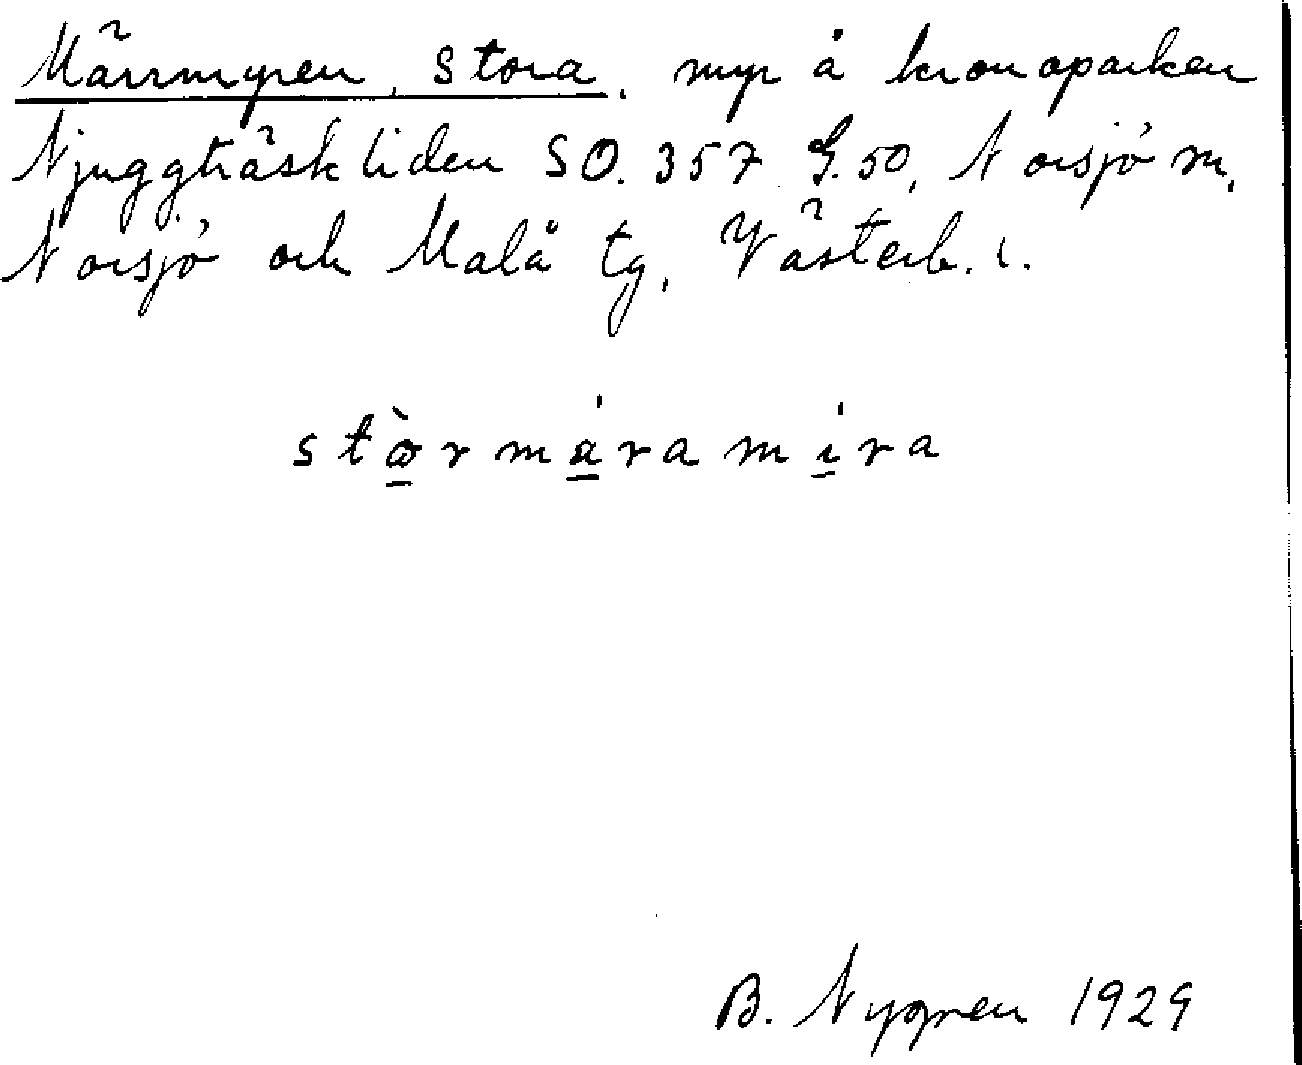 Märrmyren, Stora, myr å kronoparken
Njuggträskliden SO. 357 G. 50, Norsjö sn,
Norsjö och Malå tg, Västerb. l.
stòrmáramíra
B. Nygren 1929